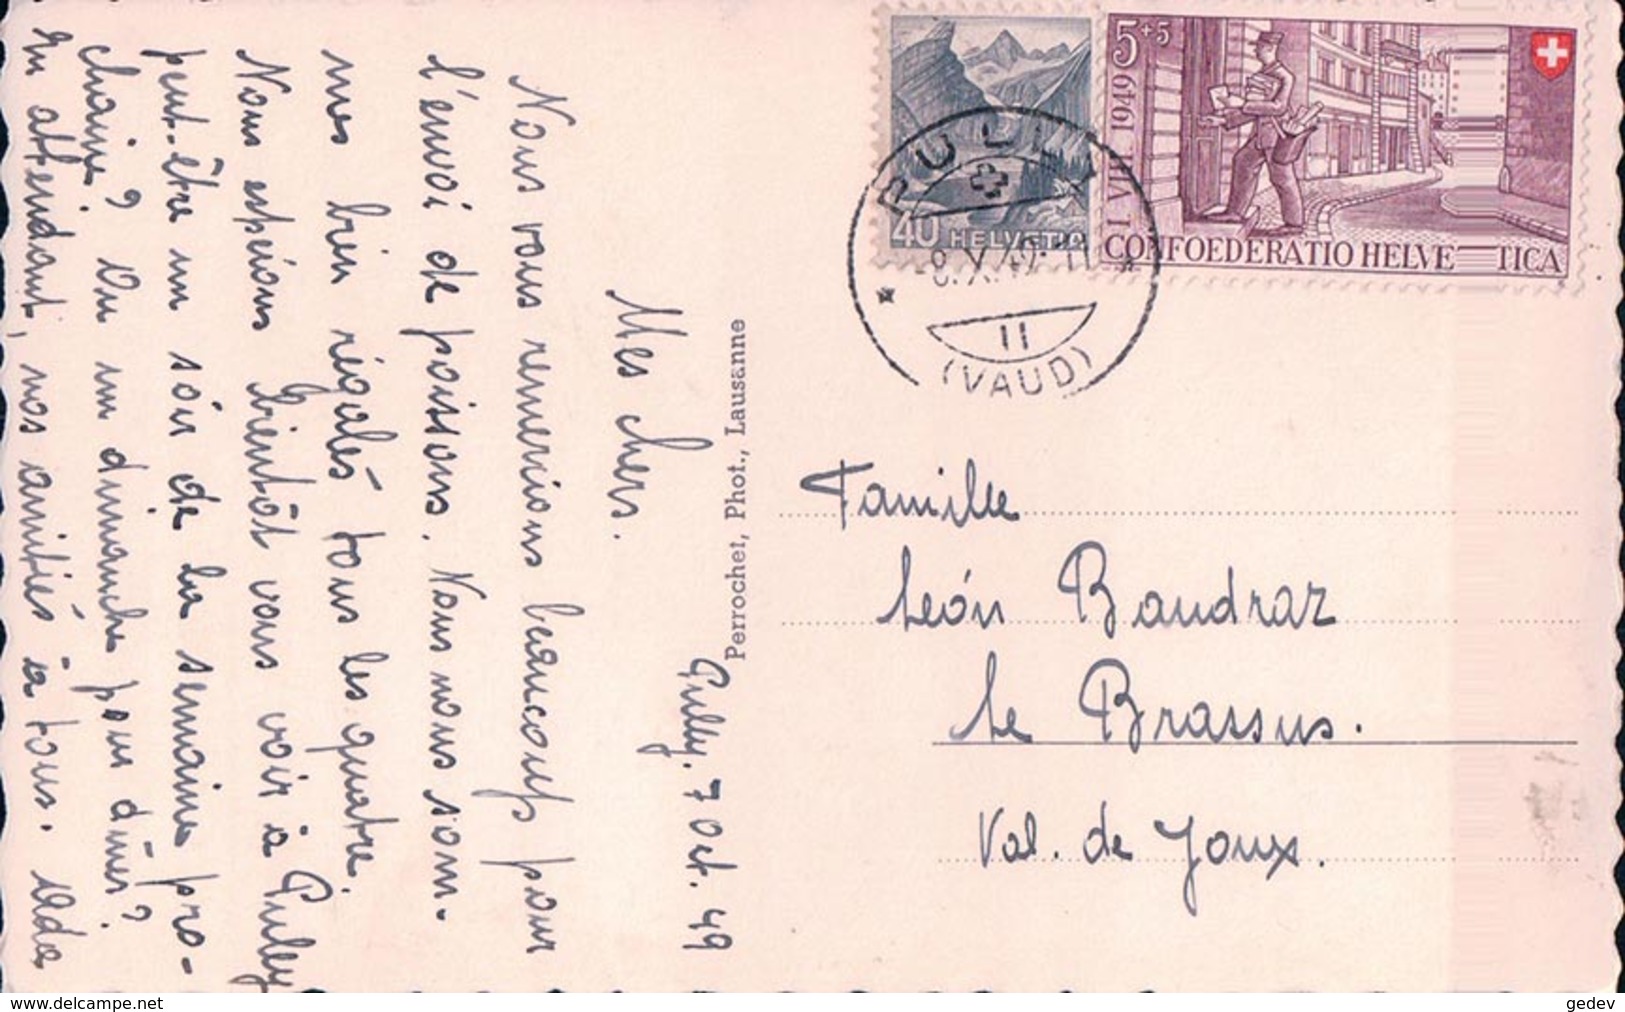 Pully. 7 Oct. 49
Mes chers.
Nous vous remercions beaucoup pour
l'envoi de poissons. Nous nous som-
mes bien régalés tous les quatre.
Nous espérons bientôt vous voir à Pully
peut-être un soir de la semaine pro-
chaine? Ou un dimanche pour dîner?
En attendant, nos amitiés à tous. Ada
Perrochet, Phot., Lausanne
40 HELVETIA
5+5
I VIII 1949
CONFOEDERATIO HELVE TICA
PULLY
-8.X.49-11
II
(VAUD)
Famille
Léon Baudraz
Le Brassus.
Val. de Joux.
www.delcampe.net
gedev